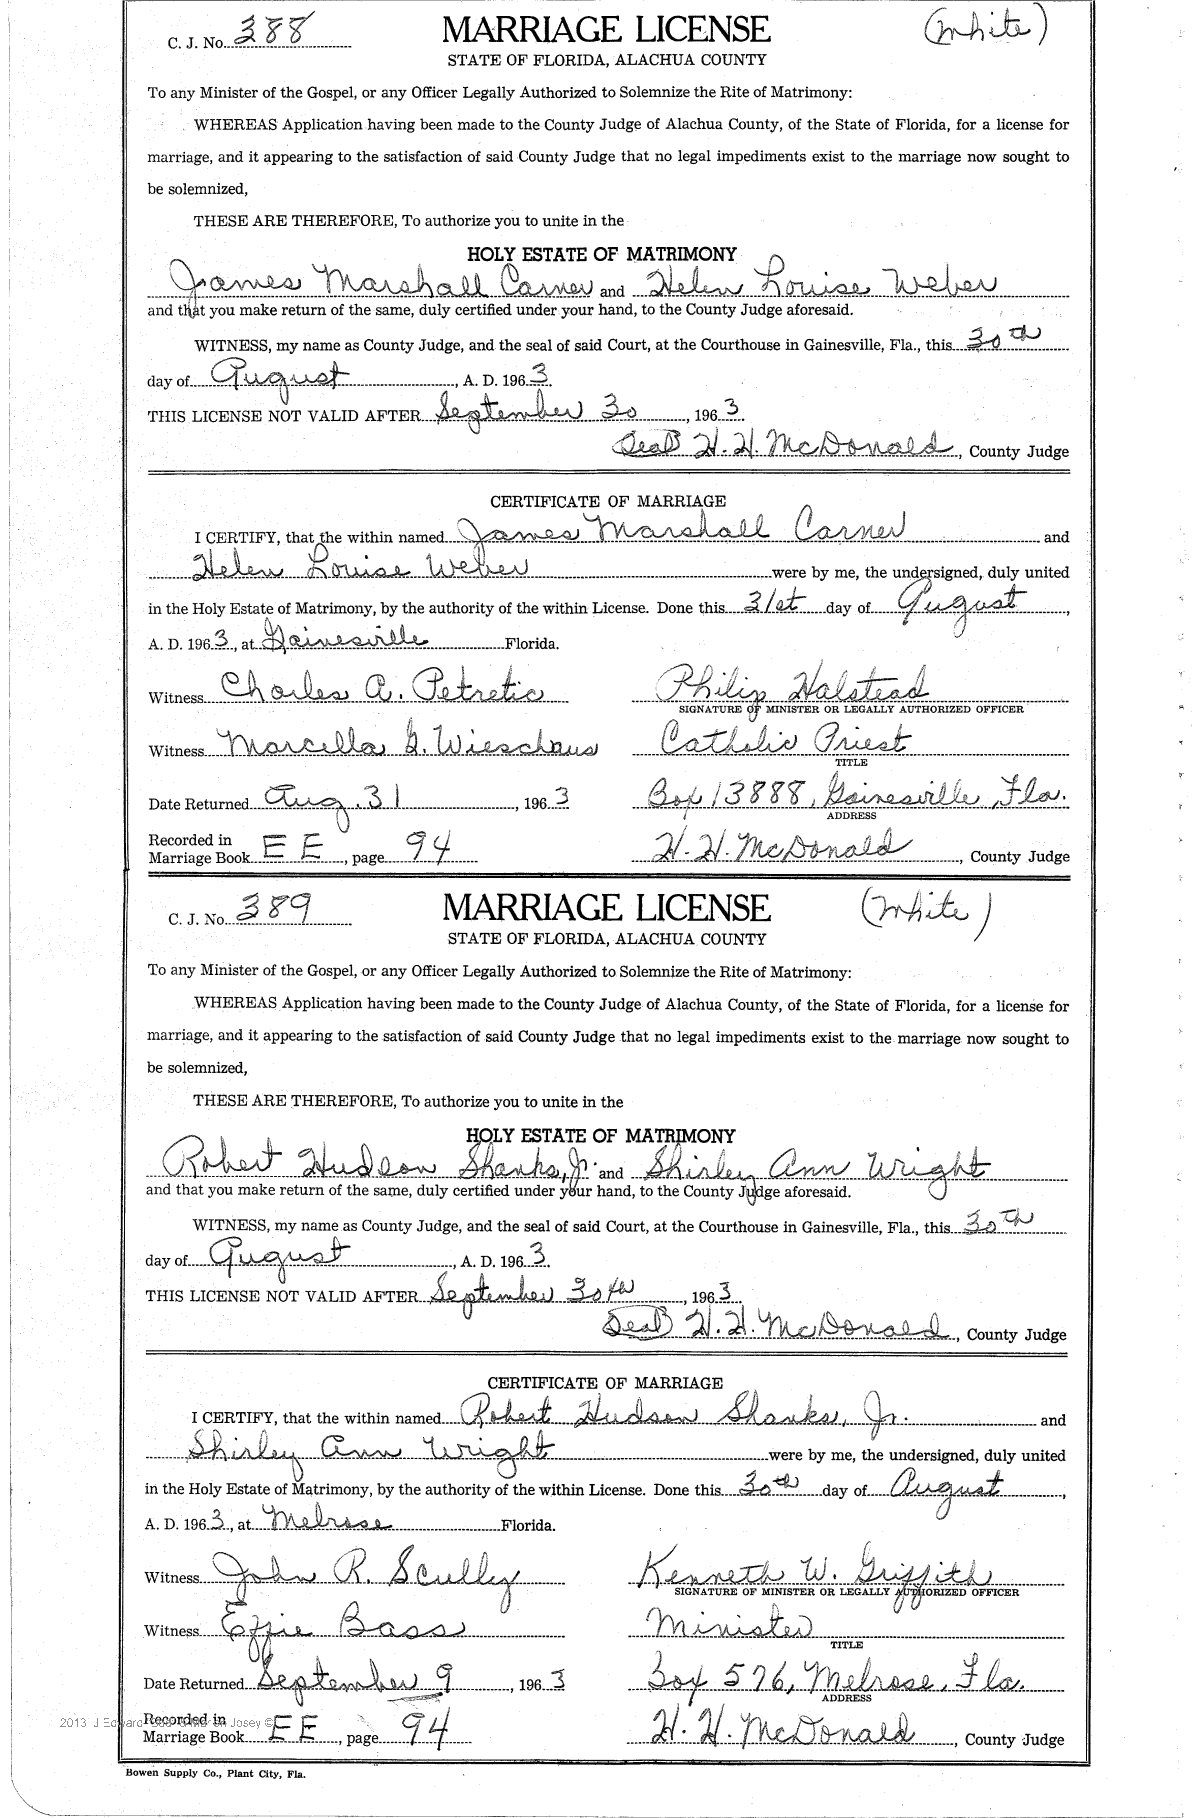 C. J. No. 388 MARRIAGE LICENSE (White)
STATE OF FLORIDA, ALACHUA COUNTY
To any Minister of the Gospel, or any Officer Legally Authorized to Solemnize the Rite of Matrimony:
WHEREAS Application having been made to the County Judge of Alachua County, of the State of Florida, for a license for
marriage, and it appearing to the satisfaction of said County Judge that no legal impediments exist to the marriage now sought to
be solemnized,
THESE ARE THEREFORE, To authorize you to unite in the
HOLY ESTATE OF MATRIMONY
James Marshall Carner and Helen Louise Weber
and that you make return of the same, duly certified under your hand, to the County Judge aforesaid.
WITNESS, my name as County Judge, and the seal of said Court, at the Courthouse in Gainesville, Fla., this 30th
day of August, A. D. 1963.
THIS LICENSE NOT VALID AFTER September 30, 1963.
(Seal) H. H. McDonald, County Judge
CERTIFICATE OF MARRIAGE
I CERTIFY, that the within named James Marshall Carner and
Helen Louise Weber were by me, the undersigned, duly united
in the Holy Estate of Matrimony, by the authority of the within License. Done this 31st day of August,
A. D. 1963, at Gainesville Florida.
Witness Charles A. Petretic Philip Halstead
SIGNATURE OF MINISTER OR LEGALLY AUTHORIZED OFFICER
Witness Marcella G. Wieschaus Catholic Priest
TITLE
Date Returned Aug. 31, 1963 Box 13888, Gainesville, Fla.
ADDRESS
Recorded in
Marriage Book EE, page 94 H. H. McDonald, County Judge
C. J. No. 389 MARRIAGE LICENSE (White)
STATE OF FLORIDA, ALACHUA COUNTY
To any Minister of the Gospel, or any Officer Legally Authorized to Solemnize the Rite of Matrimony:
WHEREAS Application having been made to the County Judge of Alachua County, of the State of Florida, for a license for
marriage, and it appearing to the satisfaction of said County Judge that no legal impediments exist to the marriage now sought to
be solemnized,
THESE ARE THEREFORE, To authorize you to unite in the
HOLY ESTATE OF MATRIMONY
Robert Hudson Shanks, Jr. and Shirley Ann Wright
and that you make return of the same, duly certified under your hand, to the County Judge aforesaid.
WITNESS, my name as County Judge, and the seal of said Court, at the Courthouse in Gainesville, Fla., this 30th
day of August, A. D. 1963.
THIS LICENSE NOT VALID AFTER September 30th, 1963
(Seal) H. H. McDonald, County Judge
CERTIFICATE OF MARRIAGE
I CERTIFY, that the within named Robert Hudson Shanks, Jr. and
Shirley Ann Wright were by me, the undersigned, duly united
in the Holy Estate of Matrimony, by the authority of the within License. Done this 30th day of August,
A. D. 1963, at Melrose Florida.
Witness John R. Scully Kenneth W. Griffith
SIGNATURE OF MINISTER OR LEGALLY AUTHORIZED OFFICER
Witness Effie Bass Minister
TITLE
Date Returned September 9, 1963 Box 576, Melrose, Fla.
ADDRESS
Recorded in
Marriage Book EE, page 94 H. H. McDonald, County Judge
2013 J Edward Josey ©
Bowen Supply Co., Plant City, Fla.